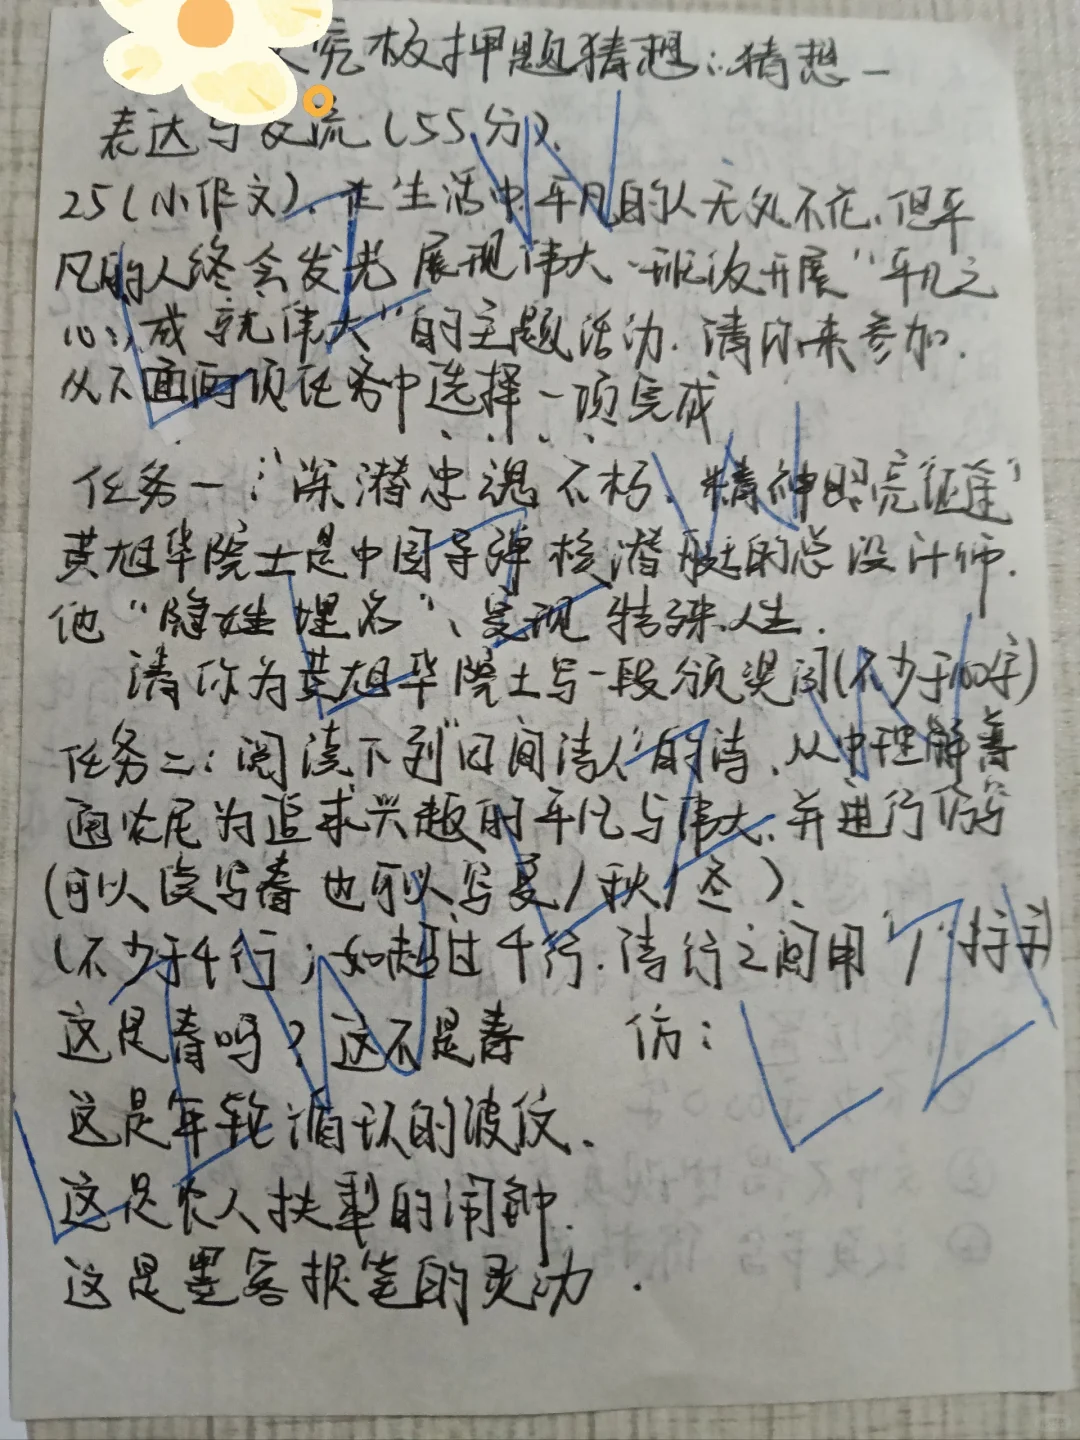 究极押题猜想:猜想一
表达与交流(55分).
25(小作文). 在生活中,平凡的人无处不在,但平
凡的人终会发光 展现伟大.班级开展"平凡之
心,成就伟大"的主题活动.请你来参加.
从下面两项任务中选择一项完成
任务一:"深潜忠魂不朽.精神照亮征途"
黄旭华院士是中国导弹核潜艇的总设计师.
他"隐姓埋名"、实现特殊人生.
请你为黄旭华院士写一段颁奖词(不少于100字)
任务二:阅读下列"田间诗人"的诗.从中理解普
通农民为追求兴趣的平凡与伟大.并进行仿写
(可以续写春 也可以写夏/秋/冬).
(不少于4行;如超过4行.请行之间用"/"标示)
这是春吗?这不是春 仿:
这是年轮循环的波纹.
这是农人扶犁的闹钟.
这是墨客提笔的灵动.